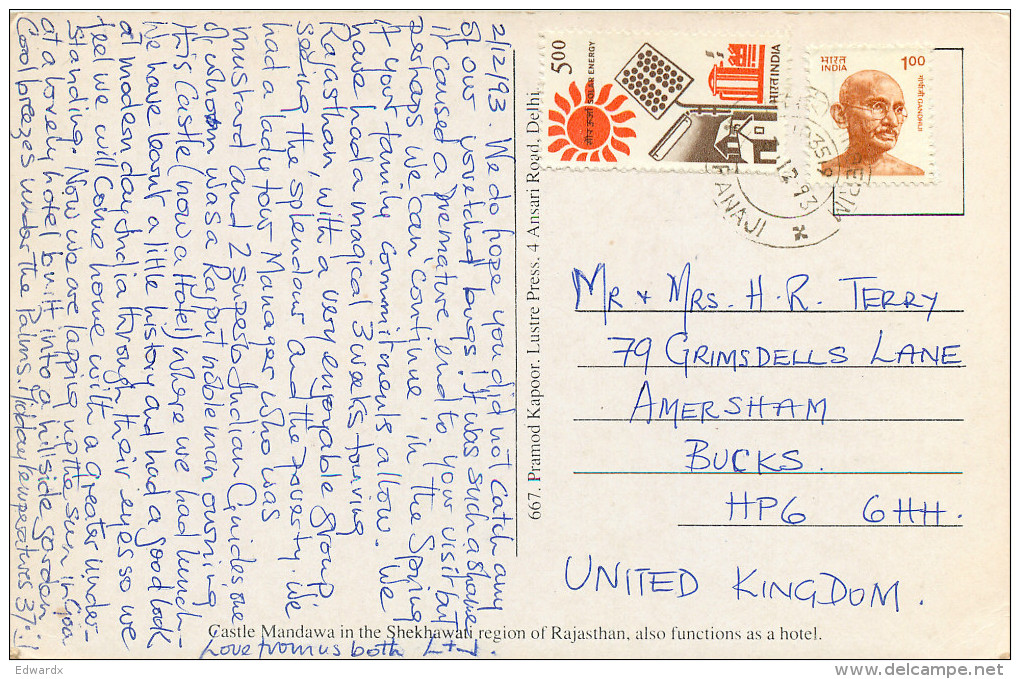 2/12/93 We do hope you did not catch any
of our wretched bugs! It was such a shame
it caused a premature end to your visit but
perhaps we can continue in the Spring
if your family commitments allow. We
have had a magical 3 weeks touring
Rajasthan, with a very enjoyable group,
seeing the splendour and the poverty. We
had a lady tour Manager who was
mustard and 2 superb Indian Guides one
of whom was a Rajput nobleman owning
this Castle (now a Hotel) where we had lunch -
We have learnt a little history and had a good look
at modern day India through their eyes so we
feel we will come home with a greater under-
standing. Now we are lapping up the sun in Goa
at a lovely hotel built into a hillside garden
Cool breezes under the Palms. Midday temperatures 37°!!
Love from us both L + J.
667. Pramod Kapoor. Lustre Press. 4 Ansari Road, Delhi.
5.00
सौर ऊर्जा SOLAR ENERGY
भारत INDIA
भारत
INDIA
1.00
गांधी जी GANDHIJI
12.93
PANAJI
Mr + Mrs. H. R. Terry
79 Grimsdells Lane
Amersham
Bucks.
HP6 6HH.
United Kingdom.
Castle Mandawa in the Shekhawati region of Rajasthan, also functions as a hotel.
Edwardx
delcampe.net